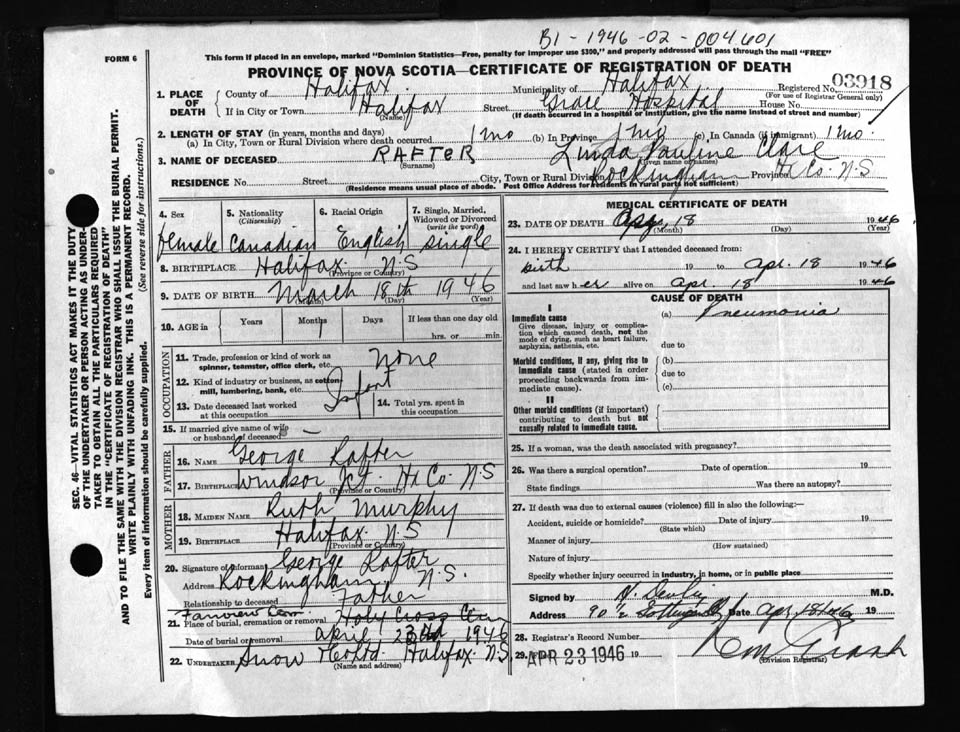 B1 - 1946 - 02 - 004601
This form if placed in an envelope, marked "Dominion Statistics—Free, penalty for improper use $300," and properly addressed will pass through the mail "FREE"
FORM 6
PROVINCE OF NOVA SCOTIA—CERTIFICATE OF REGISTRATION OF DEATH
1. PLACE OF DEATH County of Halifax Municipality of Halifax Registered No. 03918
(For use of Registrar General only)
If in City or Town Halifax (Name) Street Grace Hospital House No.
(If death occurred in a hospital or institution, give the name instead of street and number)
2. LENGTH OF STAY (in years, months and days)
(a) In City, Town or Rural Division where death occurred 1 mo (b) In Province 1 mo (c) In Canada (if immigrant) 1 mo.
3. NAME OF DECEASED RAFTER (Surname) Linda Pauline Clare (Given name or names)
RESIDENCE No. Street City, Town or Rural Division Rockingham Province Hx Co. N.S
(Residence means usual place of abode. Post Office Address for residents in rural parts not sufficient)
4. Sex female
5. Nationality (Citizenship) Canadian
6. Racial Origin English
7. Single, Married, Widowed or Divorced (write the word) single
8. BIRTHPLACE Halifax N.S (Province or Country)
9. DATE OF BIRTH March (Month) 18th (Day) 1946 (Year)
10. AGE in Years Months Days If less than one day old hrs. or min.
OCCUPATION
11. Trade, profession or kind of work as spinner, teamster, office clerk, etc. None
12. Kind of industry or business, as cotton-mill, lumbering, bank, etc. Infant
13. Date deceased last worked at this occupation
14. Total yrs. spent in this occupation
15. If married give name of wife or husband of deceased —
FATHER
16. NAME George Rafter
17. BIRTHPLACE Windsor Jct. Hx Co. N.S (Province or Country)
MOTHER
18. MAIDEN NAME Ruth Murphy
19. BIRTHPLACE Halifax N.S (Province or Country)
20. Signature of informant George Rafter
Address Rockingham N.S.
Relationship to deceased Father
Fairview Cem.
21. Place of burial, cremation or removal Holy Cross Cem
Date of burial or removal April 23rd 1946
22. UNDERTAKER Snow & Co Ltd. Halifax N.S. (Name and address)
MEDICAL CERTIFICATE OF DEATH
23. DATE OF DEATH Apr 18 (Month) (Day) 1946 (Year)
24. I HEREBY CERTIFY that I attended deceased from:
birth 19 to Apr. 18 1946
and last saw her alive on Apr. 18 1946
CAUSE OF DEATH
I
Immediate cause (a) Pneumonia
Give disease, injury or complication which caused death, not the mode of dying, such as heart failure, asphyxia, asthenia, etc.
due to
Morbid conditions, if any, giving rise to immediate cause (stated in order proceeding backwards from immediate cause).
(b)
due to
(c)
II
Other morbid conditions (if important) contributing to death but not causally related to immediate cause.
25. If a woman, was the death associated with pregnancy?
26. Was there a surgical operation? Date of operation 19
State findings Was there an autopsy?
27. If death was due to external causes (violence) fill in also the following:—
Accident, suicide or homicide? (State which) Date of injury 19
Manner of injury (How sustained)
Nature of injury
Specify whether injury occurred in industry, in home, or in public place
Signed by M.D.
Address 90 1/2 Date Apr 18 19
28. Registrar's Record Number
29. APR 23 1946 19
(Division Registrar)
SEC. 46—VITAL STATISTICS ACT MAKES IT THE DUTY OF THE UNDERTAKER OR PERSON ACTING AS UNDERTAKER TO OBTAIN ALL THE PARTICULARS REQUIRED IN THE "CERTIFICATE OF REGISTRATION OF DEATH" AND TO FILE THE SAME WITH THE DIVISION REGISTRAR WHO SHALL ISSUE THE BURIAL PERMIT.
WRITE PLAINLY WITH UNFADING INK. THIS IS A PERMANENT RECORD.
Every item of information should be carefully supplied. (See reverse side for instructions.)